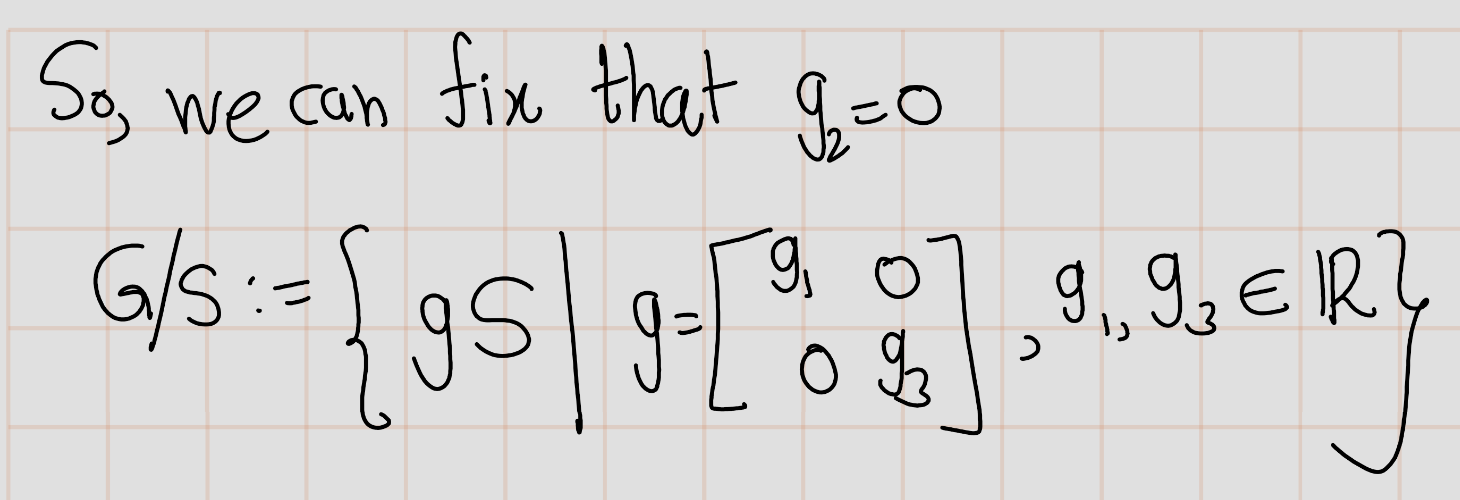 So, we can fix that g₂=0
G/S := { gS | g= [ g₁ 0 ; 0 g₃ ] , g₁, g₃ ∈ ℝ }